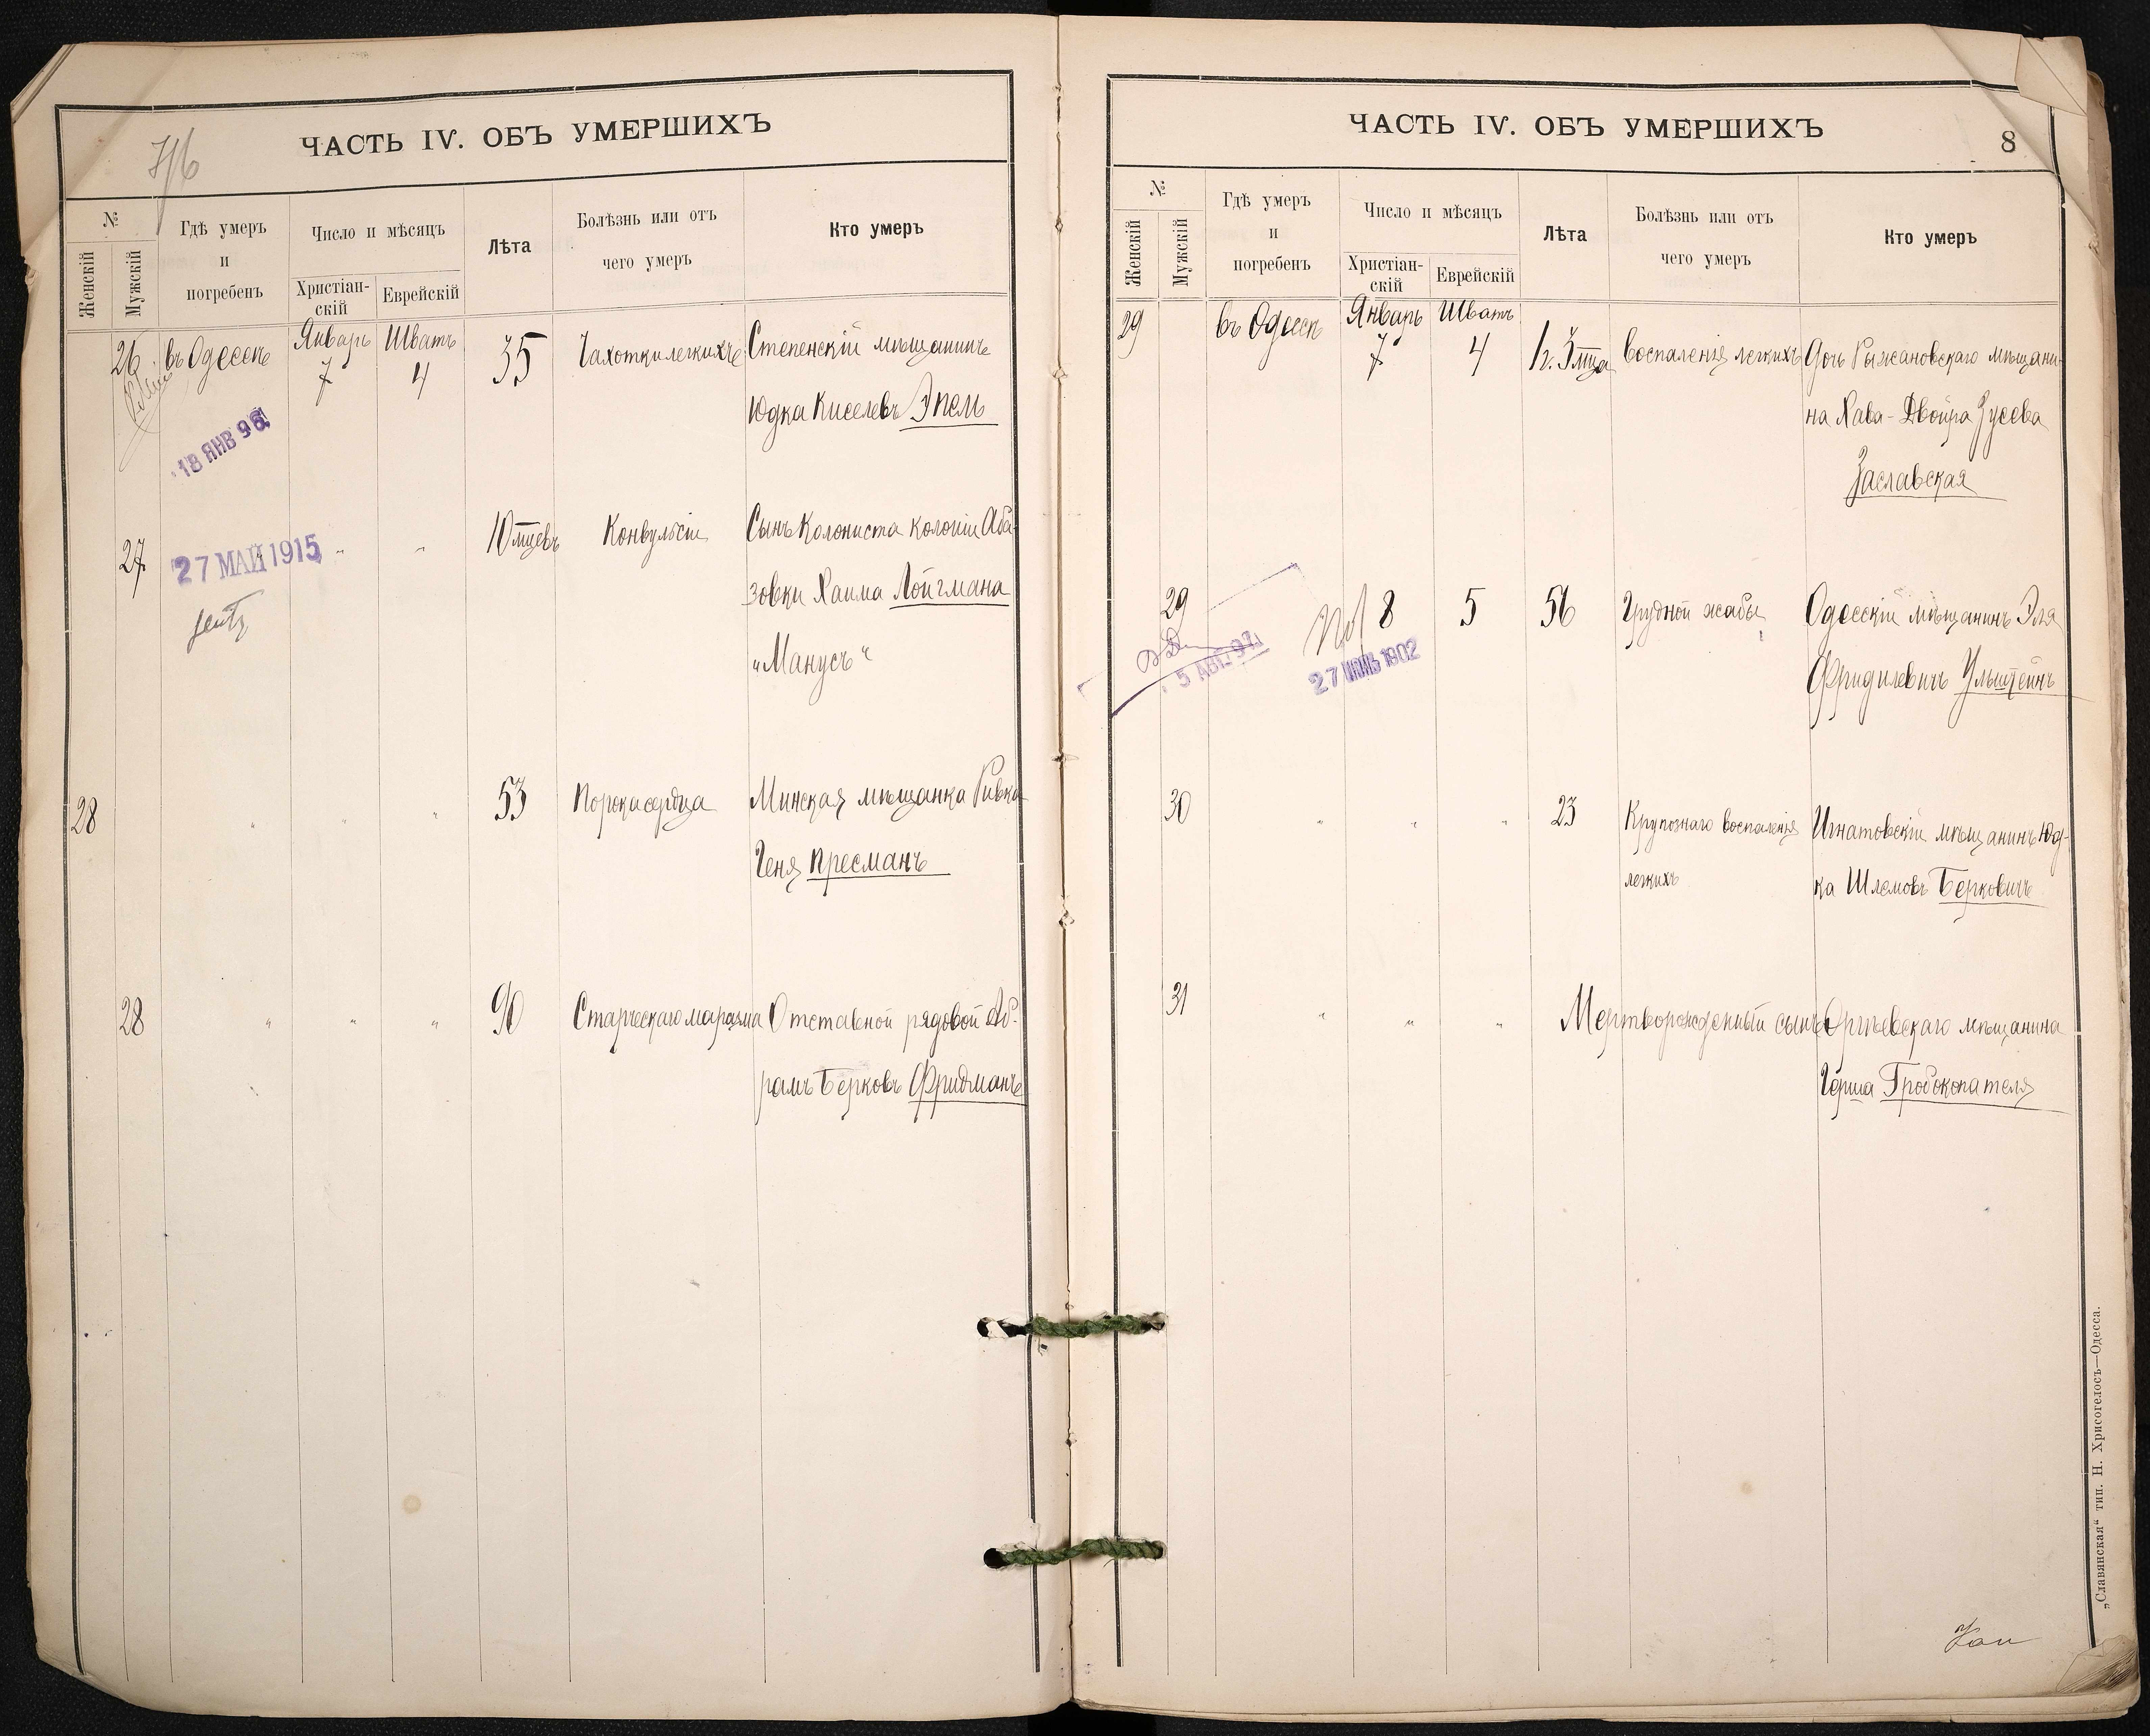 ЧАСТЬ IV. ОБЪ УМЕРШИХЪ
№
Женскій
Мужскій
Гдѣ умеръ
и
погребенъ
Число и мѣсяцъ
Христіан-
скій
Еврейскій
Лѣта
Болѣзнь или отъ
чего умеръ
Кто умеръ
26 въ Одессѣ Январь 7 Шватъ 4 35 Чахотки легкихъ Степенскій мѣщанинъ
Юдка Киселевъ Эпель
18 ЯНВ 96
27 " " " 10 мцевъ Конвульсіи Сынъ Колониста колоніи Аба-
зовки Хаима Лойгмана
"Манусъ"
27 МАЙ 1915
28 " " " 53 Порока сердца Минская мѣщанка Ривка
Геня Пресманъ
28 " " " 90 Старческаго маразма Отставной рядовой Аб-
рамъ Берковъ Фридманъ
ЧАСТЬ IV. ОБЪ УМЕРШИХЪ
8
№
Женскій
Мужскій
Гдѣ умеръ
и
погребенъ
Число и мѣсяцъ
Христіан-
скій
Еврейскій
Лѣта
Болѣзнь или отъ
чего умеръ
Кто умеръ
29 въ Одессѣ Январь 7 Шватъ 4 1 г. 3 мца Воспаленія легкихъ Дочь Рыжановскаго мѣщани-
на Хава-Двойра Зусева
Заславская
29 8 5 56 Грудной жабы Одесскій мѣщанинъ Эля
Фридилевичъ Ульштейнъ
5 АВГ. 97
27 ИЮНЬ 1902
30 " " " 23 Крупознаго воспаленія Игнатовскій мѣщанинъ Юд-
легкихъ ка Шлемовъ Берковичъ
31 " " " Мертворожденный сынъ Оргѣевскаго мѣщанина
Герша Гробокопателя
„Славянская" тип. Н. Хрисогелосъ—Одесса.